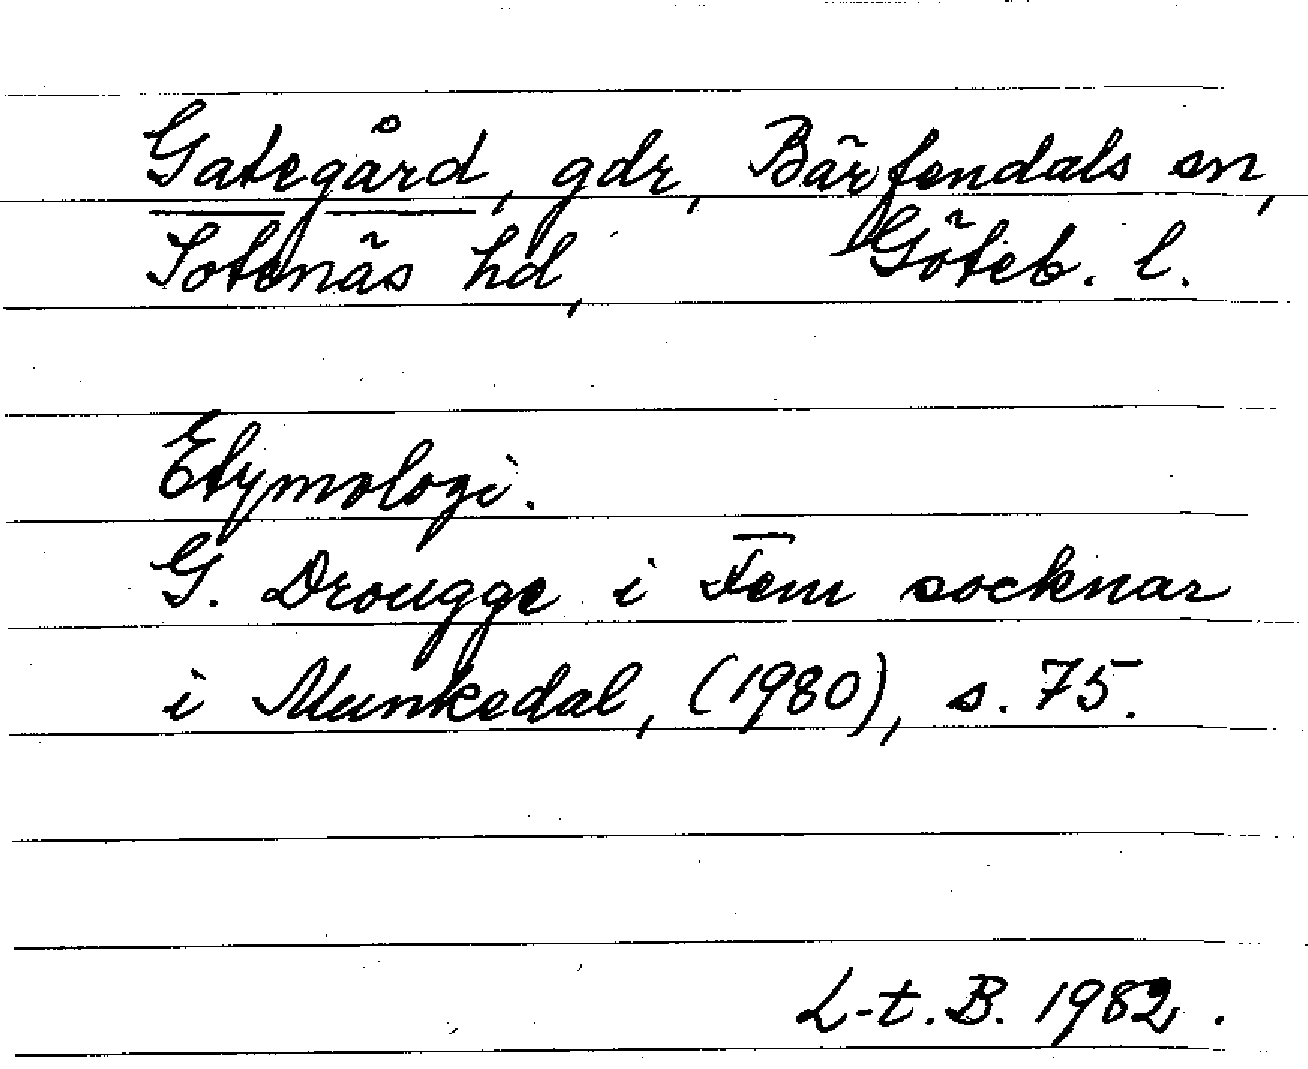 Gategård, gdr, Bärfendals sn,
Sotenäs hd, Göteb. l.
Etymologi.
G. Drougge i Fem socknar
i Munkedal, (1980), s. 75.
L-t. B. 1982.